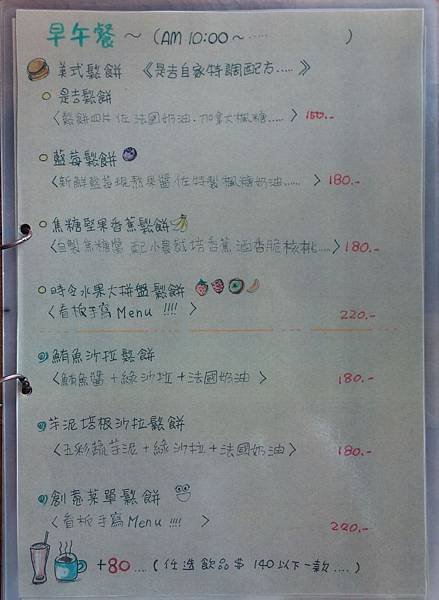 早午餐 ～ (AM 10:00～ ..... )
美式鬆餅 《是吉自家特調配方.....》
是吉鬆餅
〈鬆餅四片佐法國奶油.加拿大楓糖.....〉 150.-
藍莓鬆餅
〈新鮮藍莓現熬果醬佐特製楓糖奶油......〉 180.-
焦糖堅果香蕉鬆餅
〈自製焦糖醬 配小農栽培香蕉 酒香脆核桃....〉 180.-
時令水果大拼盤鬆餅
〈看板手寫Menu !!!! 〉 220.-
鮪魚沙拉鬆餅
〈鮪魚醬+綠沙拉+法國奶油 〉 180.-
芋泥培根沙拉鬆餅
〈五彩蔬芋泥+綠沙拉+法國奶油〉 180.-
創意菜單鬆餅
〈看板手寫Menu !!!! 〉 220.-
+80....(任選飲品$140以下一款....)